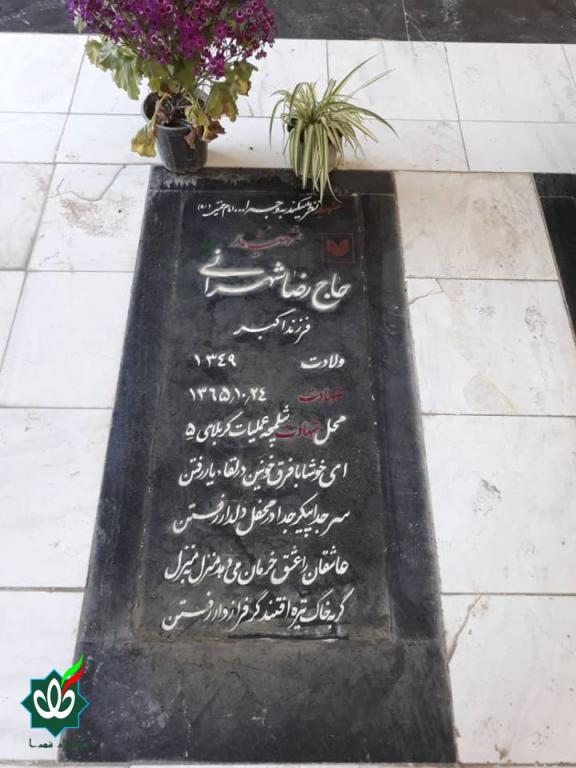 شهید نظر میکند به وجه ا... امام خمینی (ره)
شهید
حاج رضا شهرانی
فرزند اکبر
ولادت ۱۳۴۹
شهادت ۱۳۶۵٫۱۰٫۲۴
محل شهادت شلمچه عملیات کربلای ۵
ای خوشا با فرق خونین در لقاء یار رفتن
سر جدا پیکر جدا در محفل دلدار رفتن
عاشقان را عشق فرمان می دهد منزل به منزل
گر به خاک تیره افتند گر فراز دار رفتن